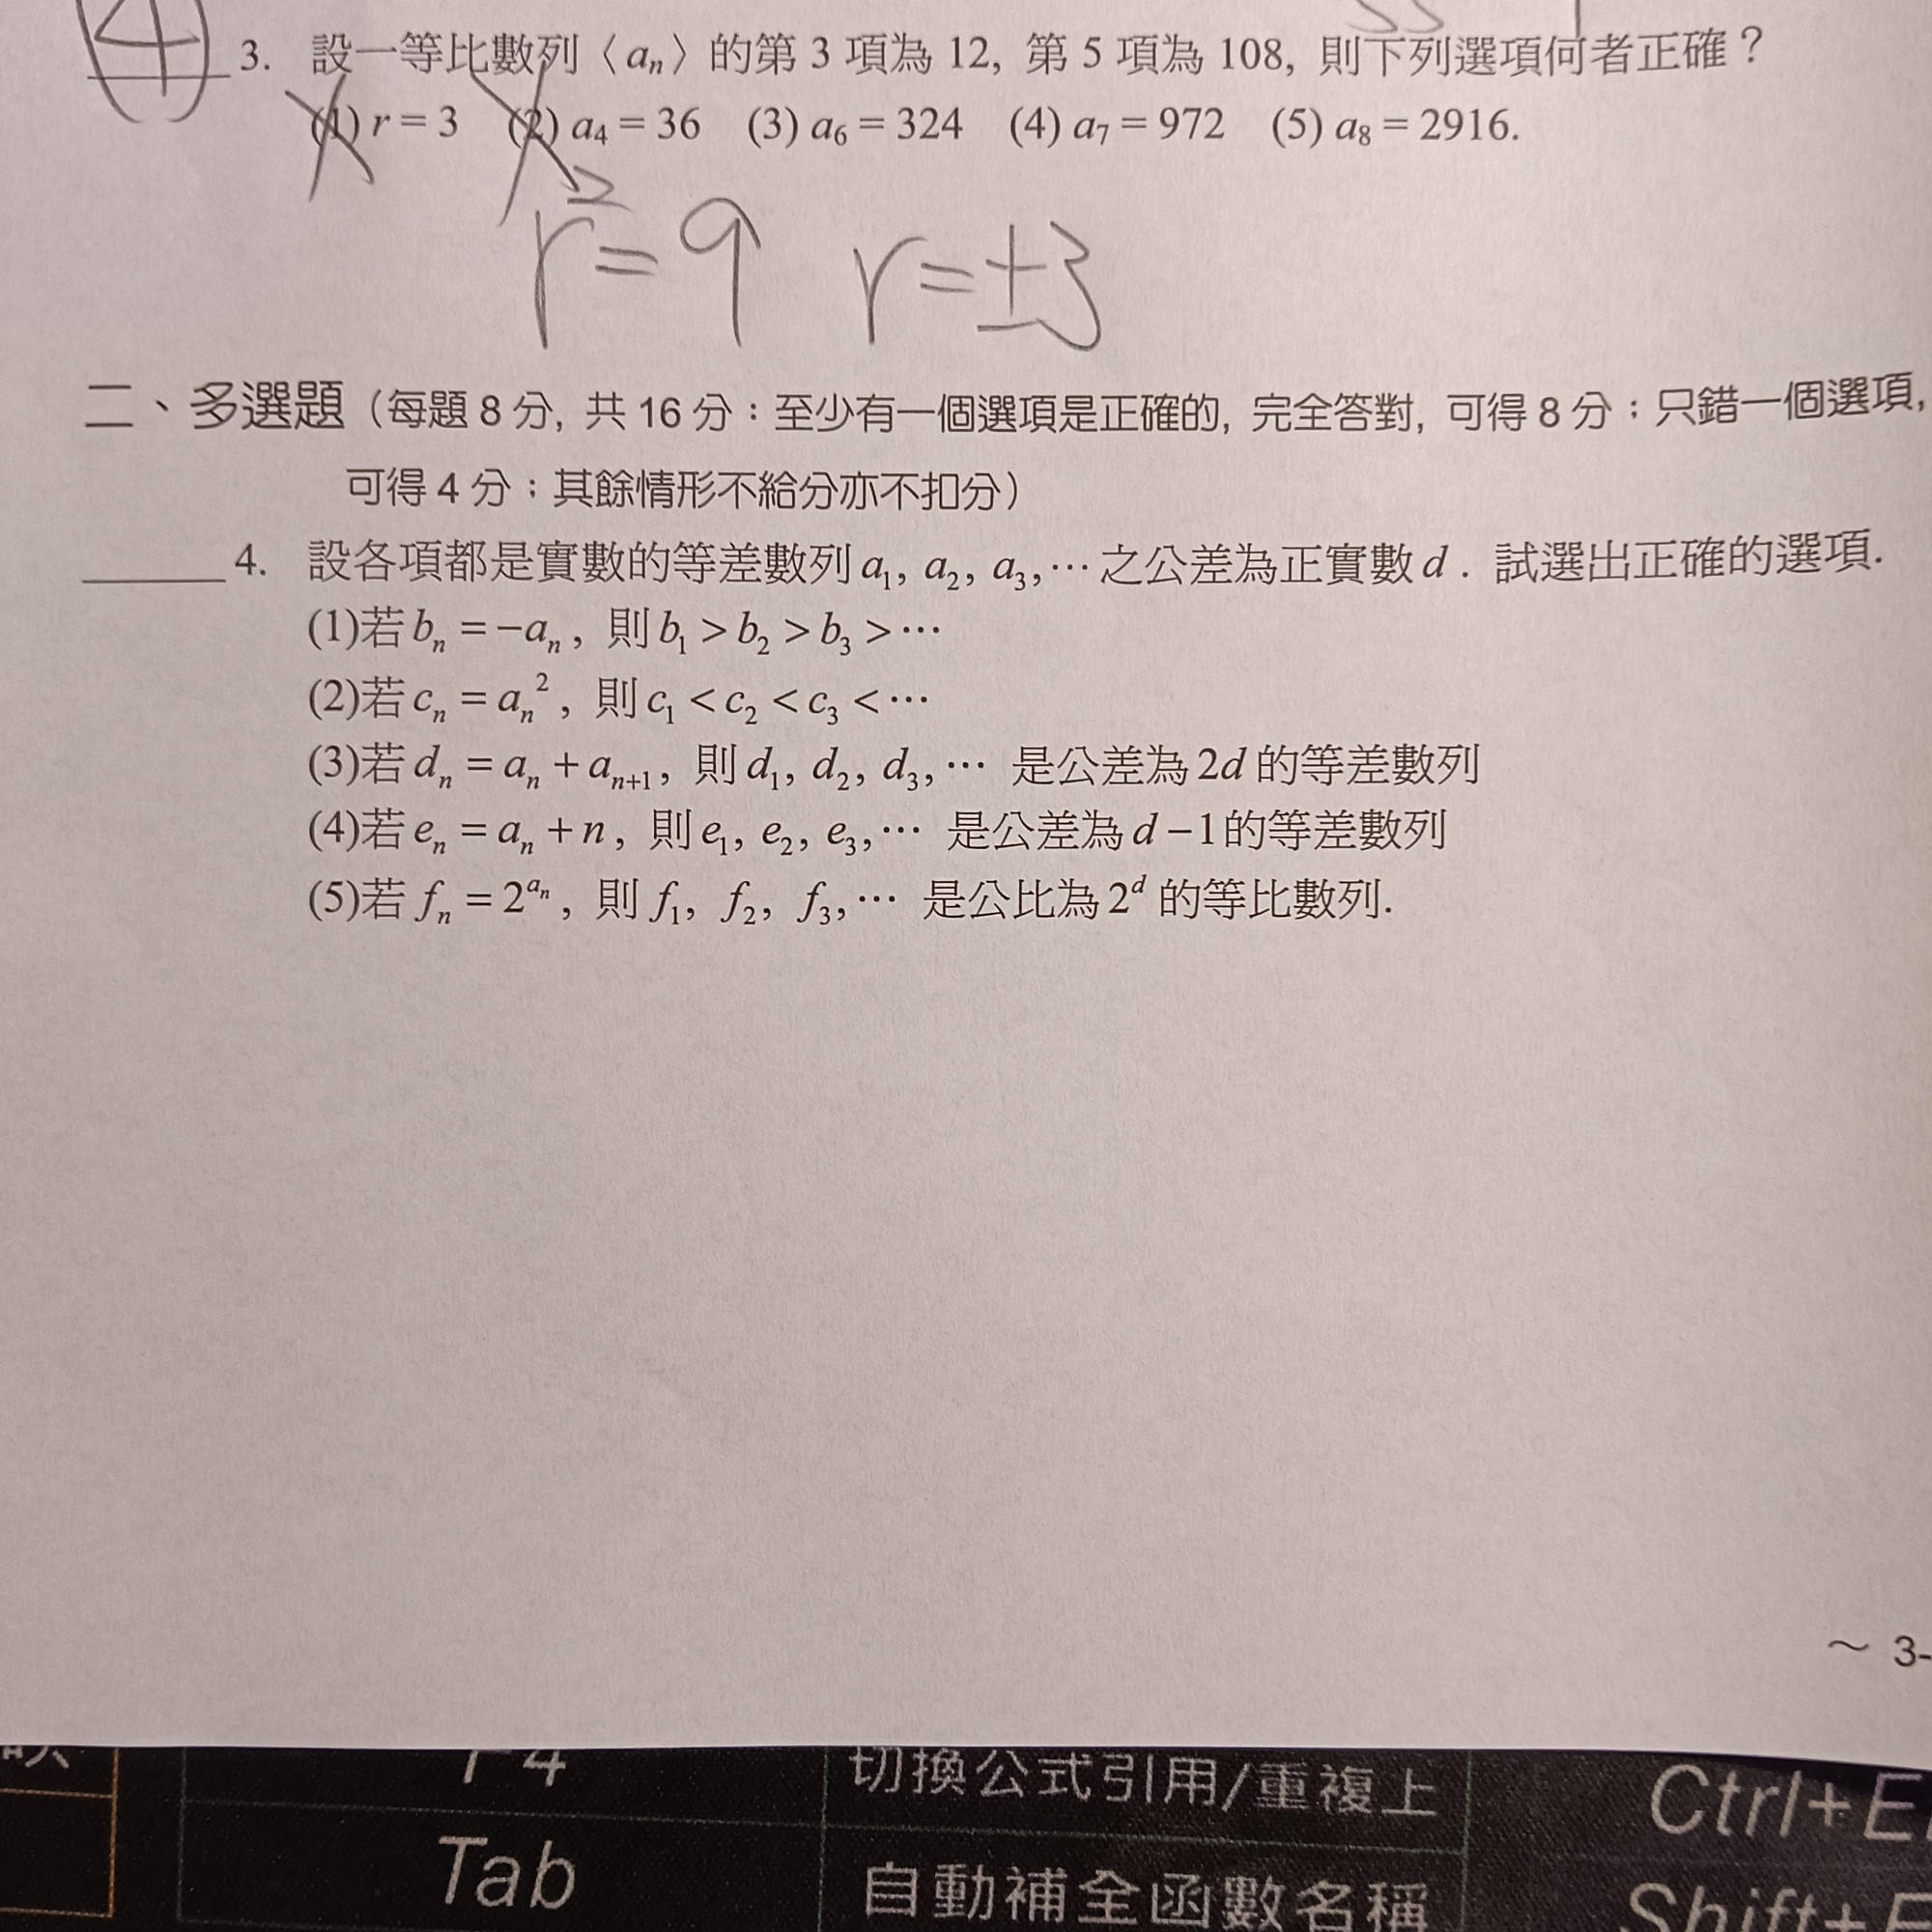 (4) 3. 設一等比數列〈aₙ〉的第 3 項為 12, 第 5 項為 108, 則下列選項何者正確？
(1) r = 3 (2) a₄ = 36 (3) a₆ = 324 (4) a₇ = 972 (5) a₈ = 2916.
r² = 9 r = ±3
二、多選題（每題 8 分, 共 16 分：至少有一個選項是正確的, 完全答對, 可得 8 分；只錯一個選項,
可得 4 分；其餘情形不給分亦不扣分）
4. 設各項都是實數的等差數列 a₁, a₂, a₃, ⋯ 之公差為正實數 d．試選出正確的選項.
(1)若 bₙ = −aₙ, 則 b₁ > b₂ > b₃ > ⋯
(2)若 cₙ = aₙ², 則 c₁ < c₂ < c₃ < ⋯
(3)若 dₙ = aₙ + aₙ₊₁, 則 d₁, d₂, d₃, ⋯ 是公差為 2d 的等差數列
(4)若 eₙ = aₙ + n, 則 e₁, e₂, e₃, ⋯ 是公差為 d − 1 的等差數列
(5)若 fₙ = 2^{aₙ}, 則 f₁, f₂, f₃, ⋯ 是公比為 2^d 的等比數列.
～ 3-
F4 切換公式引用/重複上 Ctrl+E
Tab 自動補全函數名稱 Shift+F